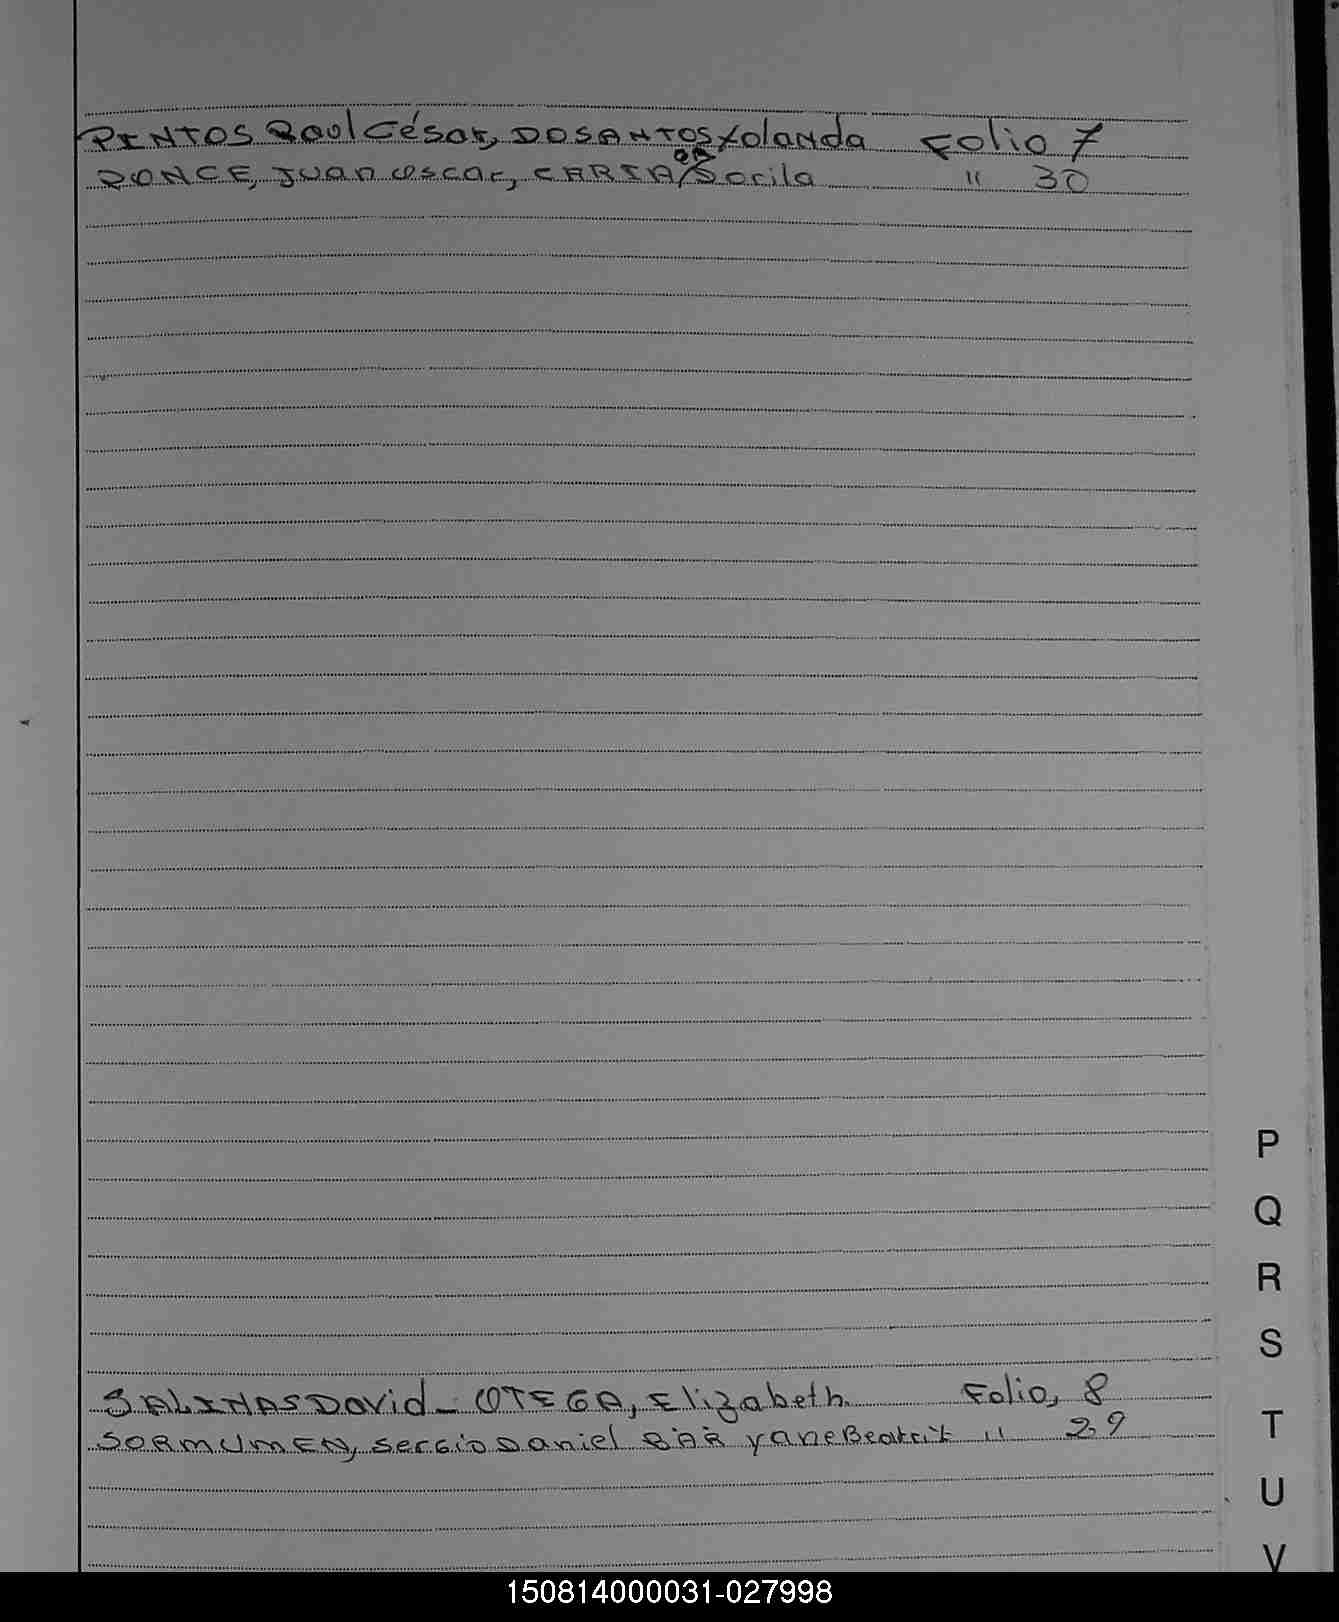 PINTOS Raul César, DOSANTOS Yolanda Folio 7
PONCE, Juan oscar, CARIA Dorila " 30
P
Q
R
S
SALINAS David - OTEGA, Elizabeth. Folio, 8
T
SORMUMEN, Sergio Daniel yane Beatriz " 29
U
V
150814000031-027998